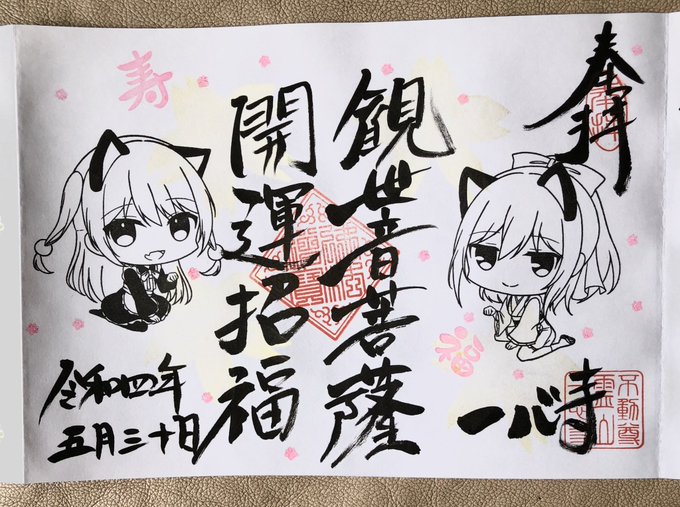 奉拝
観世音菩薩
開運招福
令和四年
五月三十日
一心寺
寿
福
不動尊
霊山